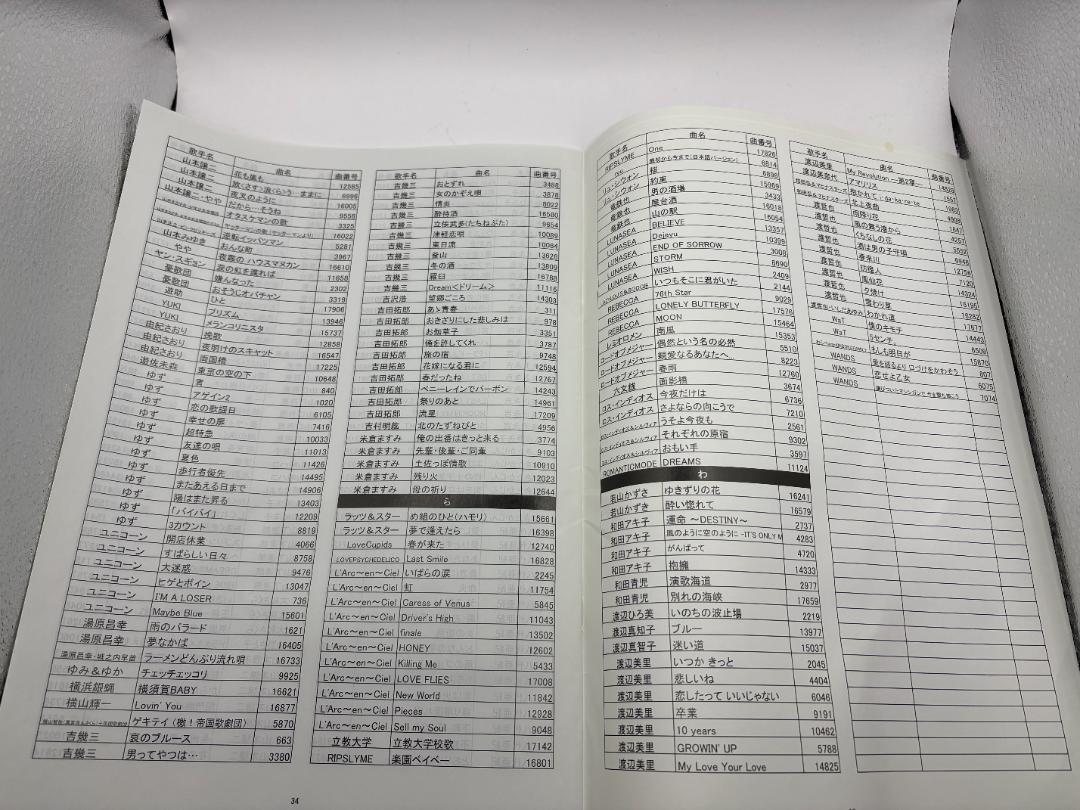 歌手名 曲名 曲番号
山本譲二 花も嵐も 12585
山本譲二
山本譲二 夜叉のように
山本譲二 だから…そうね 9558
オタスケマンの歌 3325
16022
逆転イッパツマン 5281
山本みゆき おんな町 3967
やや 夜霧の ハウスマヌカン 16610
ヤン・スギョン 愛の虹を渡れば 11658
憂歌団 嫌んなった 2302
憂歌団 おそうじオバチャン 3319
遊助 ひと 17906
YUKI プリズム 13946
YUKI メランコリニスタ 15737
由紀さおり 挽歌 12858
由紀さおり 夜明けのスキャット 16547
由紀さおり 両国橋 17225
遊佐未森 東京の空の下 10648
ゆず 840
ゆず アゲイン2 1020
ゆず 恋の歌謡日 6105
ゆず 幸せの扉 7416
ゆず 超特急 10033
ゆず 友達の唄 11013
ゆず 夏色 11426
ゆず 歩行者優先 14495
ゆず またあえる日まで 14906
ゆず 陽はまた昇る 13403
ゆず 「バイバイ」 12209
ゆず 3カウント 8819
ユニコーン 開店休業 4066
ユニコーン すばらしい日々 8758
ユニコーン 大迷惑 9476
ユニコーン ヒゲとボイン 13047
ユニコーン I'M A LOSER 736
ユニコーン Maybe Blue 15601
湯原昌幸 雨のバラード 1621
湯原昌幸 夢なかば 16405
湯原昌幸・城之内早苗 ラーメンどんぶり流れ唄 16733
ゆみ&ゆか チェッチェッコリ 9925
横浜銀蝿 横須賀BABY 16621
横山輝一 Lovin' You 16877
ゲキテイ(檄!帝国歌劇団) 5870
吉幾三 哀のブルース 663
吉幾三 男ってやつは… 3380
34
歌手名 曲名 曲番号
吉幾三 おとずれ 3488
吉幾三 女のかぞえ唄 3876
吉幾三 情炎 8022
吉幾三 酔待酒 16580
吉幾三 立佞武多(たちねぷた) 9954
吉幾三 津軽恋唄 10089
吉幾三 東日流 10084
吉幾三 登山 13626
吉幾三 冬の酒 13899
吉幾三 羅臼 16788
吉幾三 Dream<ドリーム> 11116
吉沢浩 望郷ごころ 14303
吉田拓郎 あゝ青春 311
吉田拓郎 おきざりにした悲しみは 978
吉田拓郎 お伽草子 3351
吉田拓郎 俺を許してくれ 3787
吉田拓郎 旅の宿 9748
吉田拓郎 花嫁になる君に 12594
吉田拓郎 春だったね 12767
吉田拓郎 ペニーレインでバーボン 14243
吉田拓郎 祭りのあと 14961
吉田拓郎 流星 17209
吉村明紘 北のたずねびと 4956
米倉ますみ 俺の出番はきっと来る 3774
米倉ますみ 先輩・後輩・ご同輩 9103
米倉ますみ 土佐っぽ情歌 10910
米倉ますみ 残り火 12023
米倉ますみ 母の祈り 12644
ら
ラッツ&スター め組のひと(ハモリ) 15661
ラッツ&スター 夢で逢えたら 16398
LoveCupids 春が来た 12740
LOVEPSYCHEDELICO Last Smile 16828
L'Arc~en~Ciel いばらの涙 2245
L'Arc~en~Ciel 虹 11754
L'Arc~en~Ciel Caress of Venus 5845
L'Arc~en~Ciel Driver's High 11043
L'Arc~en~Ciel finale 13502
L'Arc~en~Ciel HONEY 12602
L'Arc~en~Ciel Killing Me 5433
L'Arc~en~Ciel LOVE FLIES 17008
L'Arc~en~Ciel New World 11842
L'Arc~en~Ciel Pieces 12928
L'Arc~en~Ciel Sell my Soul 9048
立教大学 立教大学校歌 17142
RIPSLYME 楽園ベイベー 16801
歌手名 曲名 曲番号
RIPSLYME One 17826
最初から今まで(日本語バージョン) 6814
リュ・シウォン 桜 6896
リュ・シウォン 約束 15969
竜鉄也 男の酒場 3433
竜鉄也 屋台酒 16018
竜鉄也 山の駅 16054
LUNASEA BELIEVE 13357
LUNASEA Dejavu 10399
LUNASEA END OF SORROW 3008
LUNASEA STORM 6690
LUNASEA WISH 2469
いつもそこに君がいた 2144
REBECCA 76th Star 9029
REBECCA LONELY BUTTERFLY 17578
REBECCA MOON 15464
レミオロメン 南風 15353
ロードオブメジャー 偶然という名の必然 5510
ロードオブメジャー 親愛なるあなたへ… 8223
ロードオブメジャー 春雨 12760
六文銭 面影橋 3674
ロス・インディオス 今夜だけは 6736
ロス・インディオス さよならの向こうで 7210
ロス・インディオス&シルヴィア うそよ今夜も 2561
ロス・インディオス&シルヴィア それぞれの原宿 9302
ロス・インディオス&シルヴィア おもい手 3597
ROMANTICMODE DREAMS 11124
わ
若山かずさ ゆきずりの花 16241
若山かずさ 酔い惚れて 16579
和田アキ子 運命 ~DESTINY~ 2737
和田アキ子 風のように空のように -IT'S ONLY M 4283
和田アキ子 がんばって 4720
和田アキ子 抱擁 14333
和田青児 演歌海道 2977
和田青児 別れの海峡 17659
渡辺ひろ美 いのちの波止場 2219
渡辺真知子 ブルー 13977
渡辺真智子 迷い道 15037
渡辺美里 いつか きっと 2045
渡辺美里 悲しいね 4404
渡辺美里 恋したって いいじゃない 6046
渡辺美里 卒業 9191
渡辺美里 10 years 10462
渡辺美里 GROWIN' UP 5788
渡辺美里 My Love Your Love 14825
歌手名 曲名 曲番号
渡辺美里 My Revolution ー第2章ー
渡辺美奈代 アマリリス
抱かれて
北上夜曲
渡哲也 雨降り花
渡哲也 風の舞う港から
渡哲也 くちなしの花
渡哲也 酒は男の子守唄
渡哲也 春来川
渡哲也 彷徨人 12758
渡哲也 風仙花 7120
渡哲也 夕焼け
渡哲也 雪わり草
わかれ道
WaT 僕のキモチ
WaT 5センチ。
もしも明日が
WANDS
WANDS 恋せよ乙女 6075
WANDS 7074